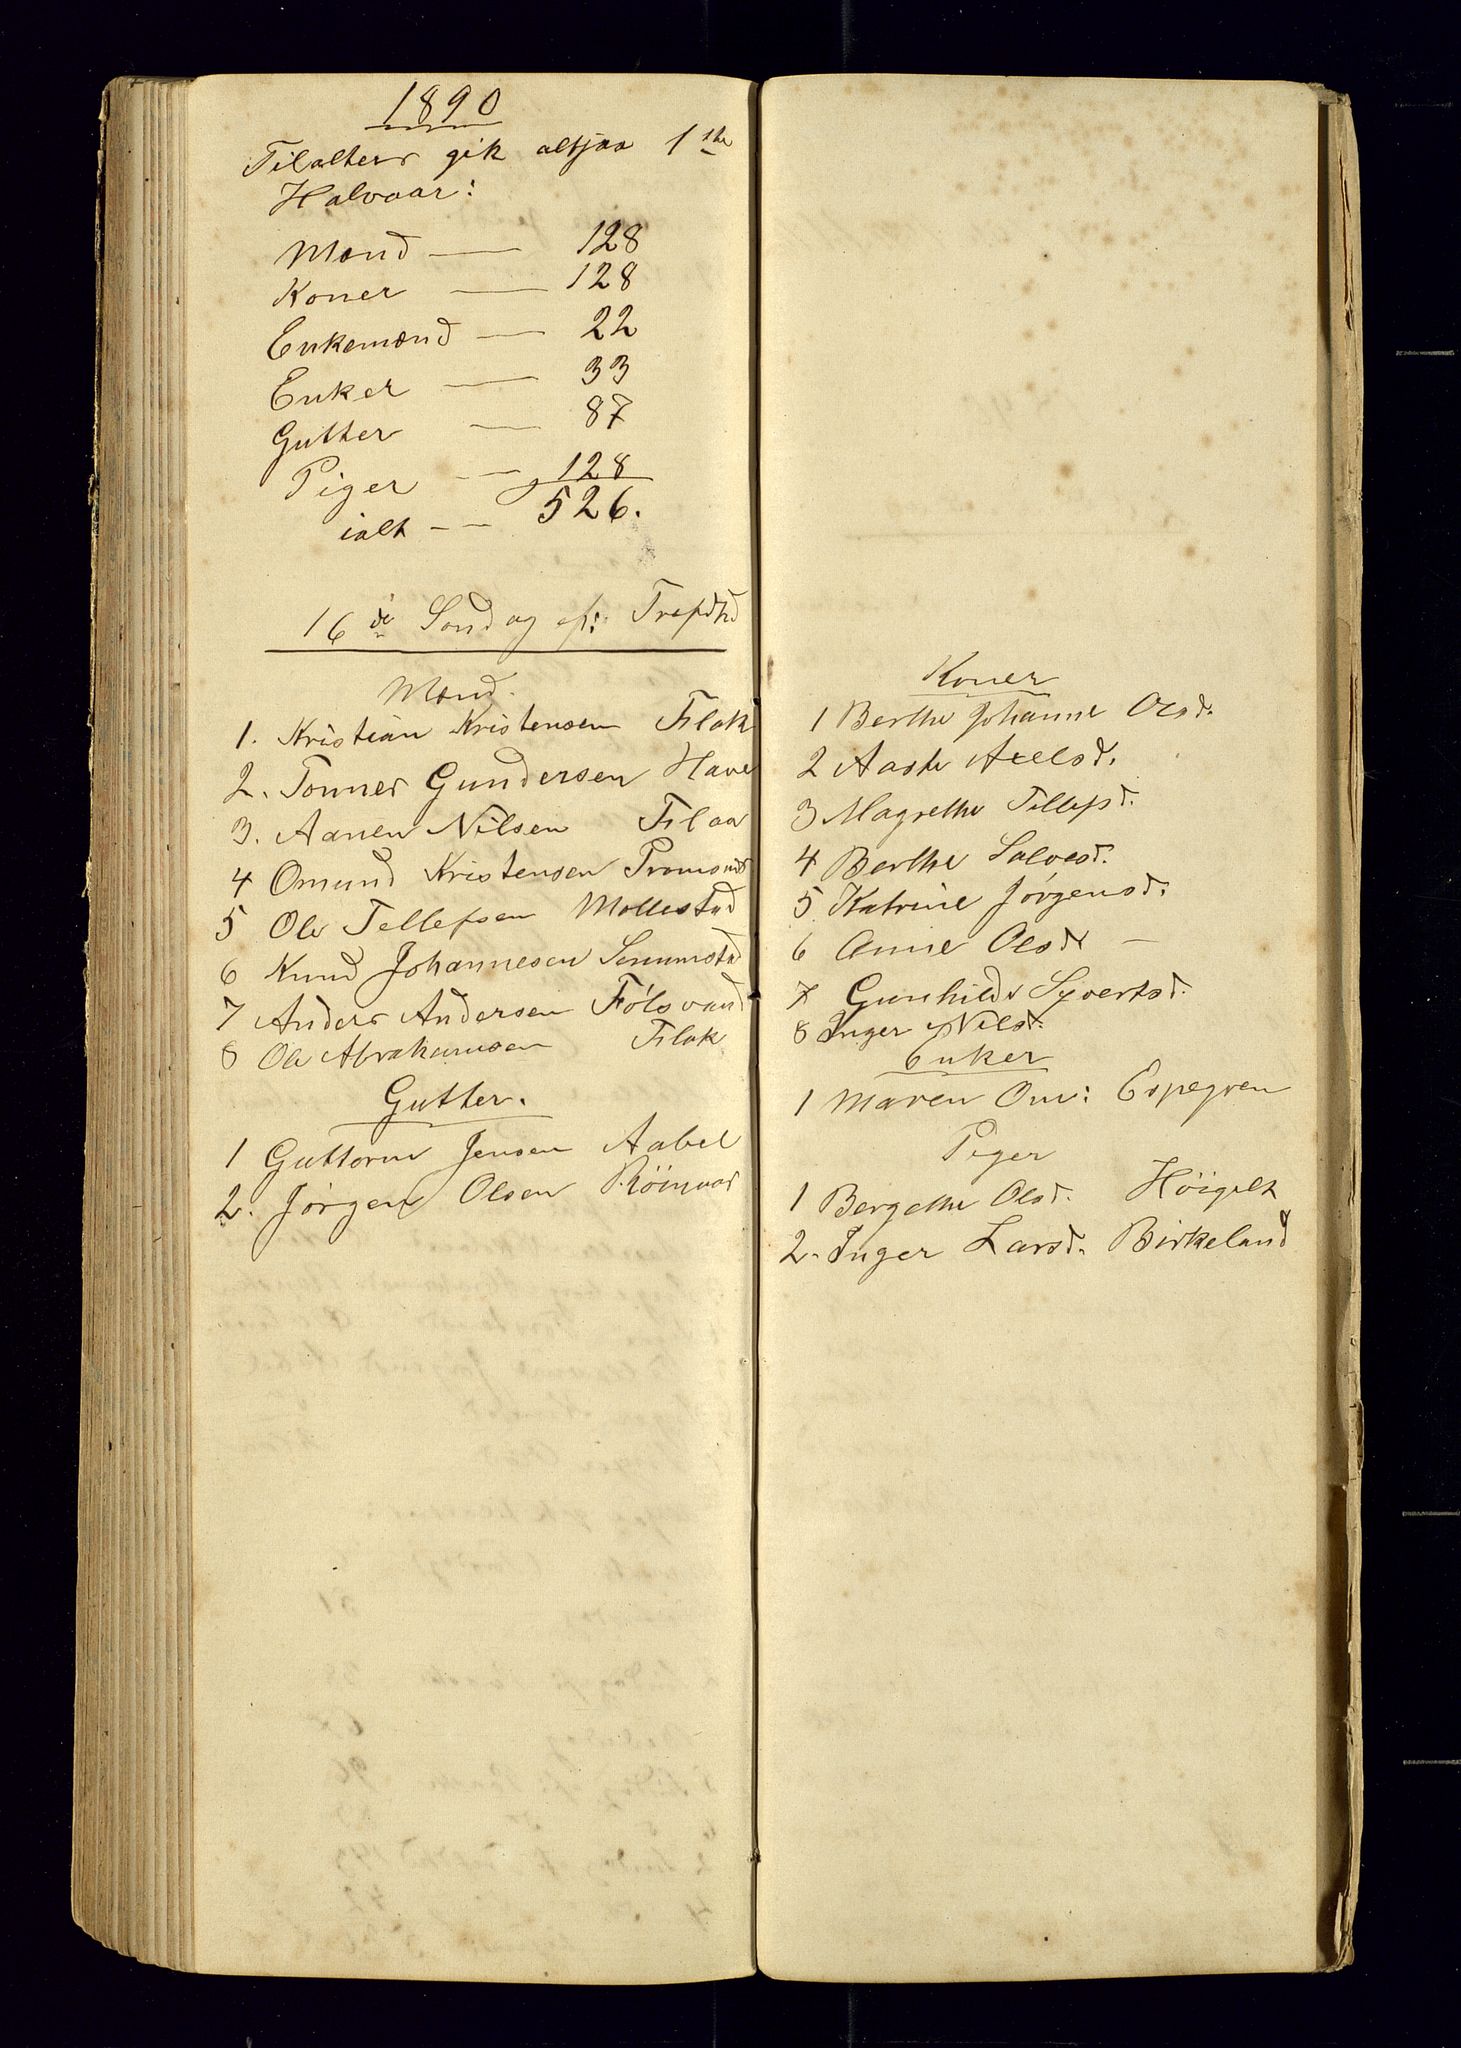 1890
Tilalters gik altsaa 1ste
Halvaar:
Mænd — 128
Koner — 128
Enkemænd — 22
Enker — 33
Gutter — 87
Piger — 128
ialt — 526.
16de Søndag ef: Trefdhd
Mænd.
1. Kristian Kristensen Flak
2. Tonnes Gundersen Have
3. Aanen Nilsen Flaa
4 Omund Kristensen
5 Ole Tellefsen Mollestad
6 Knud Johannesen Senumstad
7 Anders Andersen Fölsvand
8 Ole Abrahamsen Flak
Gutter.
1 Guttorm Jensen Aabel
2. Jörgen Olsen
Koner
1 Berthe Johanne Olsd.
2 Aaste Axelsd.
3 Magrethe Tellefsd.
4 Berthe Salvesd.
5 Katrine Jörgensd.
6 Anne Olsd —
7 Gunhilde Syvertsd.
8 Inger Nilsd.
Enker
1 Maren Om: Espegren
Piger
1 Bergethe Olsd. Höigilt
2. Inger Larsd. Birkeland